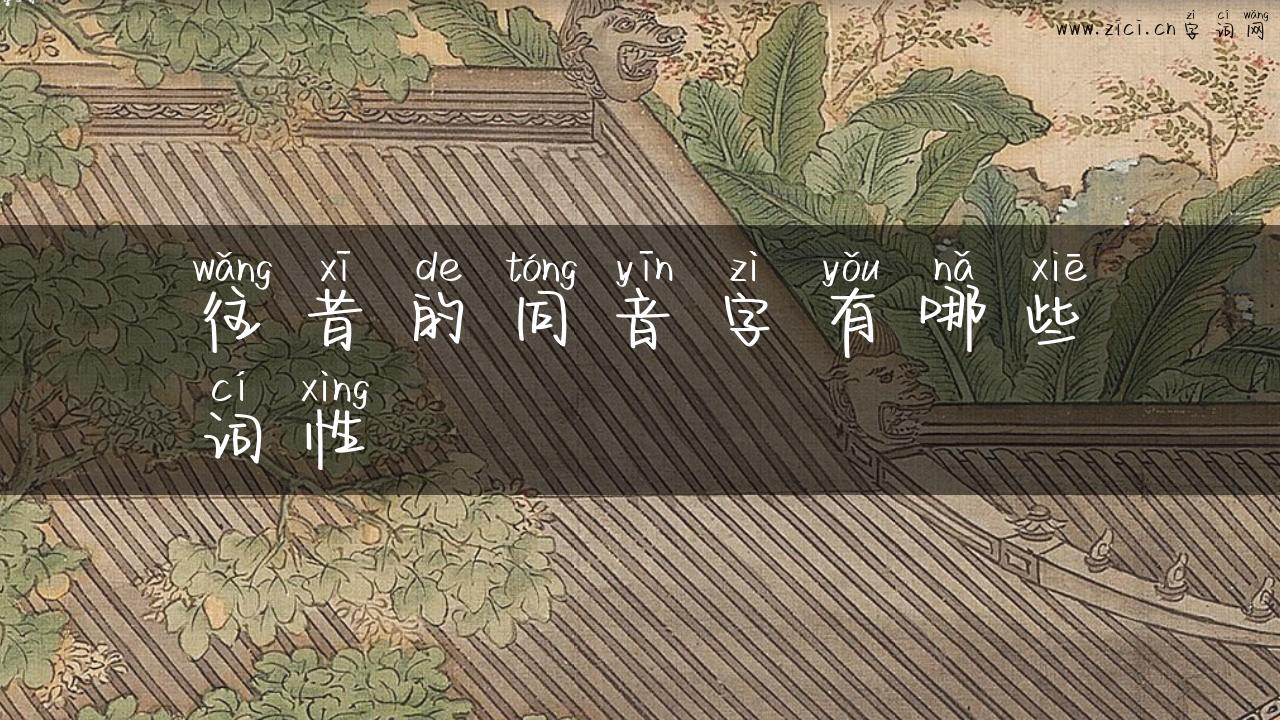 zì cí wǎng
www.zici.cn 字词网
wǎng xī de tóng yīn zì yǒu nǎ xiē
往昔的同音字有哪些
cí xìng
词性